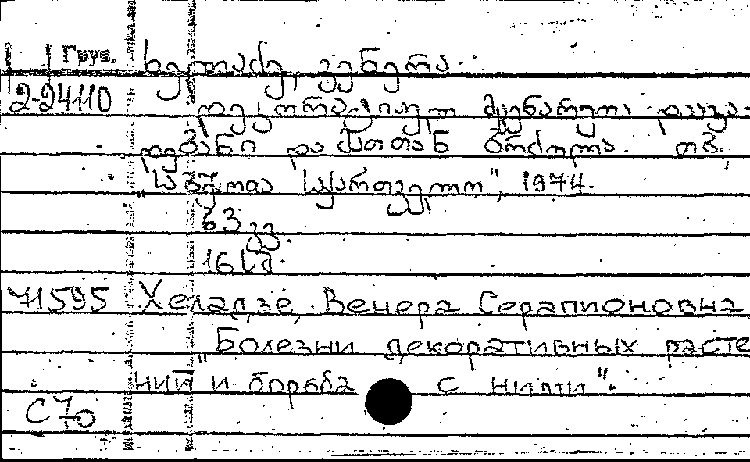 Груз. ხელაძე, ვენერა.
2-24110 დეკორატიულ მცენარეთა დაავა-
დებანი და მათთან ბრძოლა. თბ.
"საბჭოთა საქართველო", 1974.
63 გვ.
16 სმ.
71595 Хеладзе, Венера Серапионовна
"Болезни декоративных расте
ний и борьба с ними".
С70